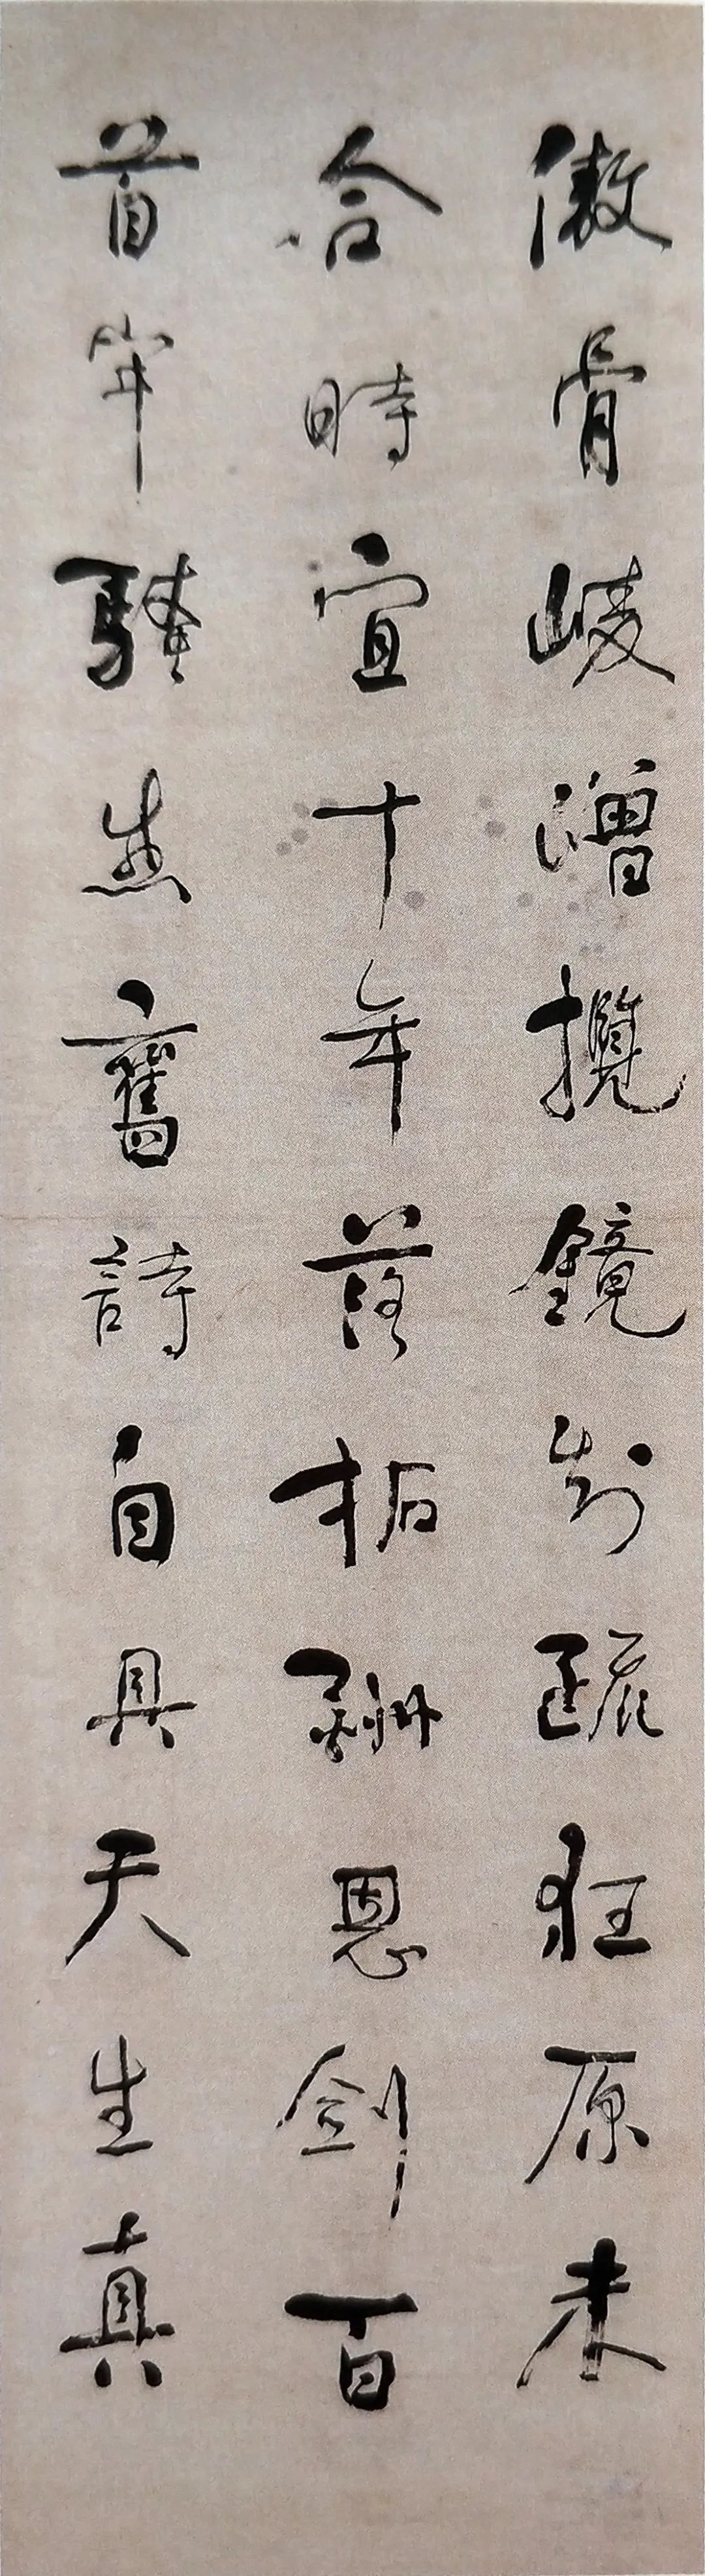 傲骨崚嶒攬鏡知疏狂原未
合時宜十年落拓酬恩劍百
首牢騷舊詩自具天生真